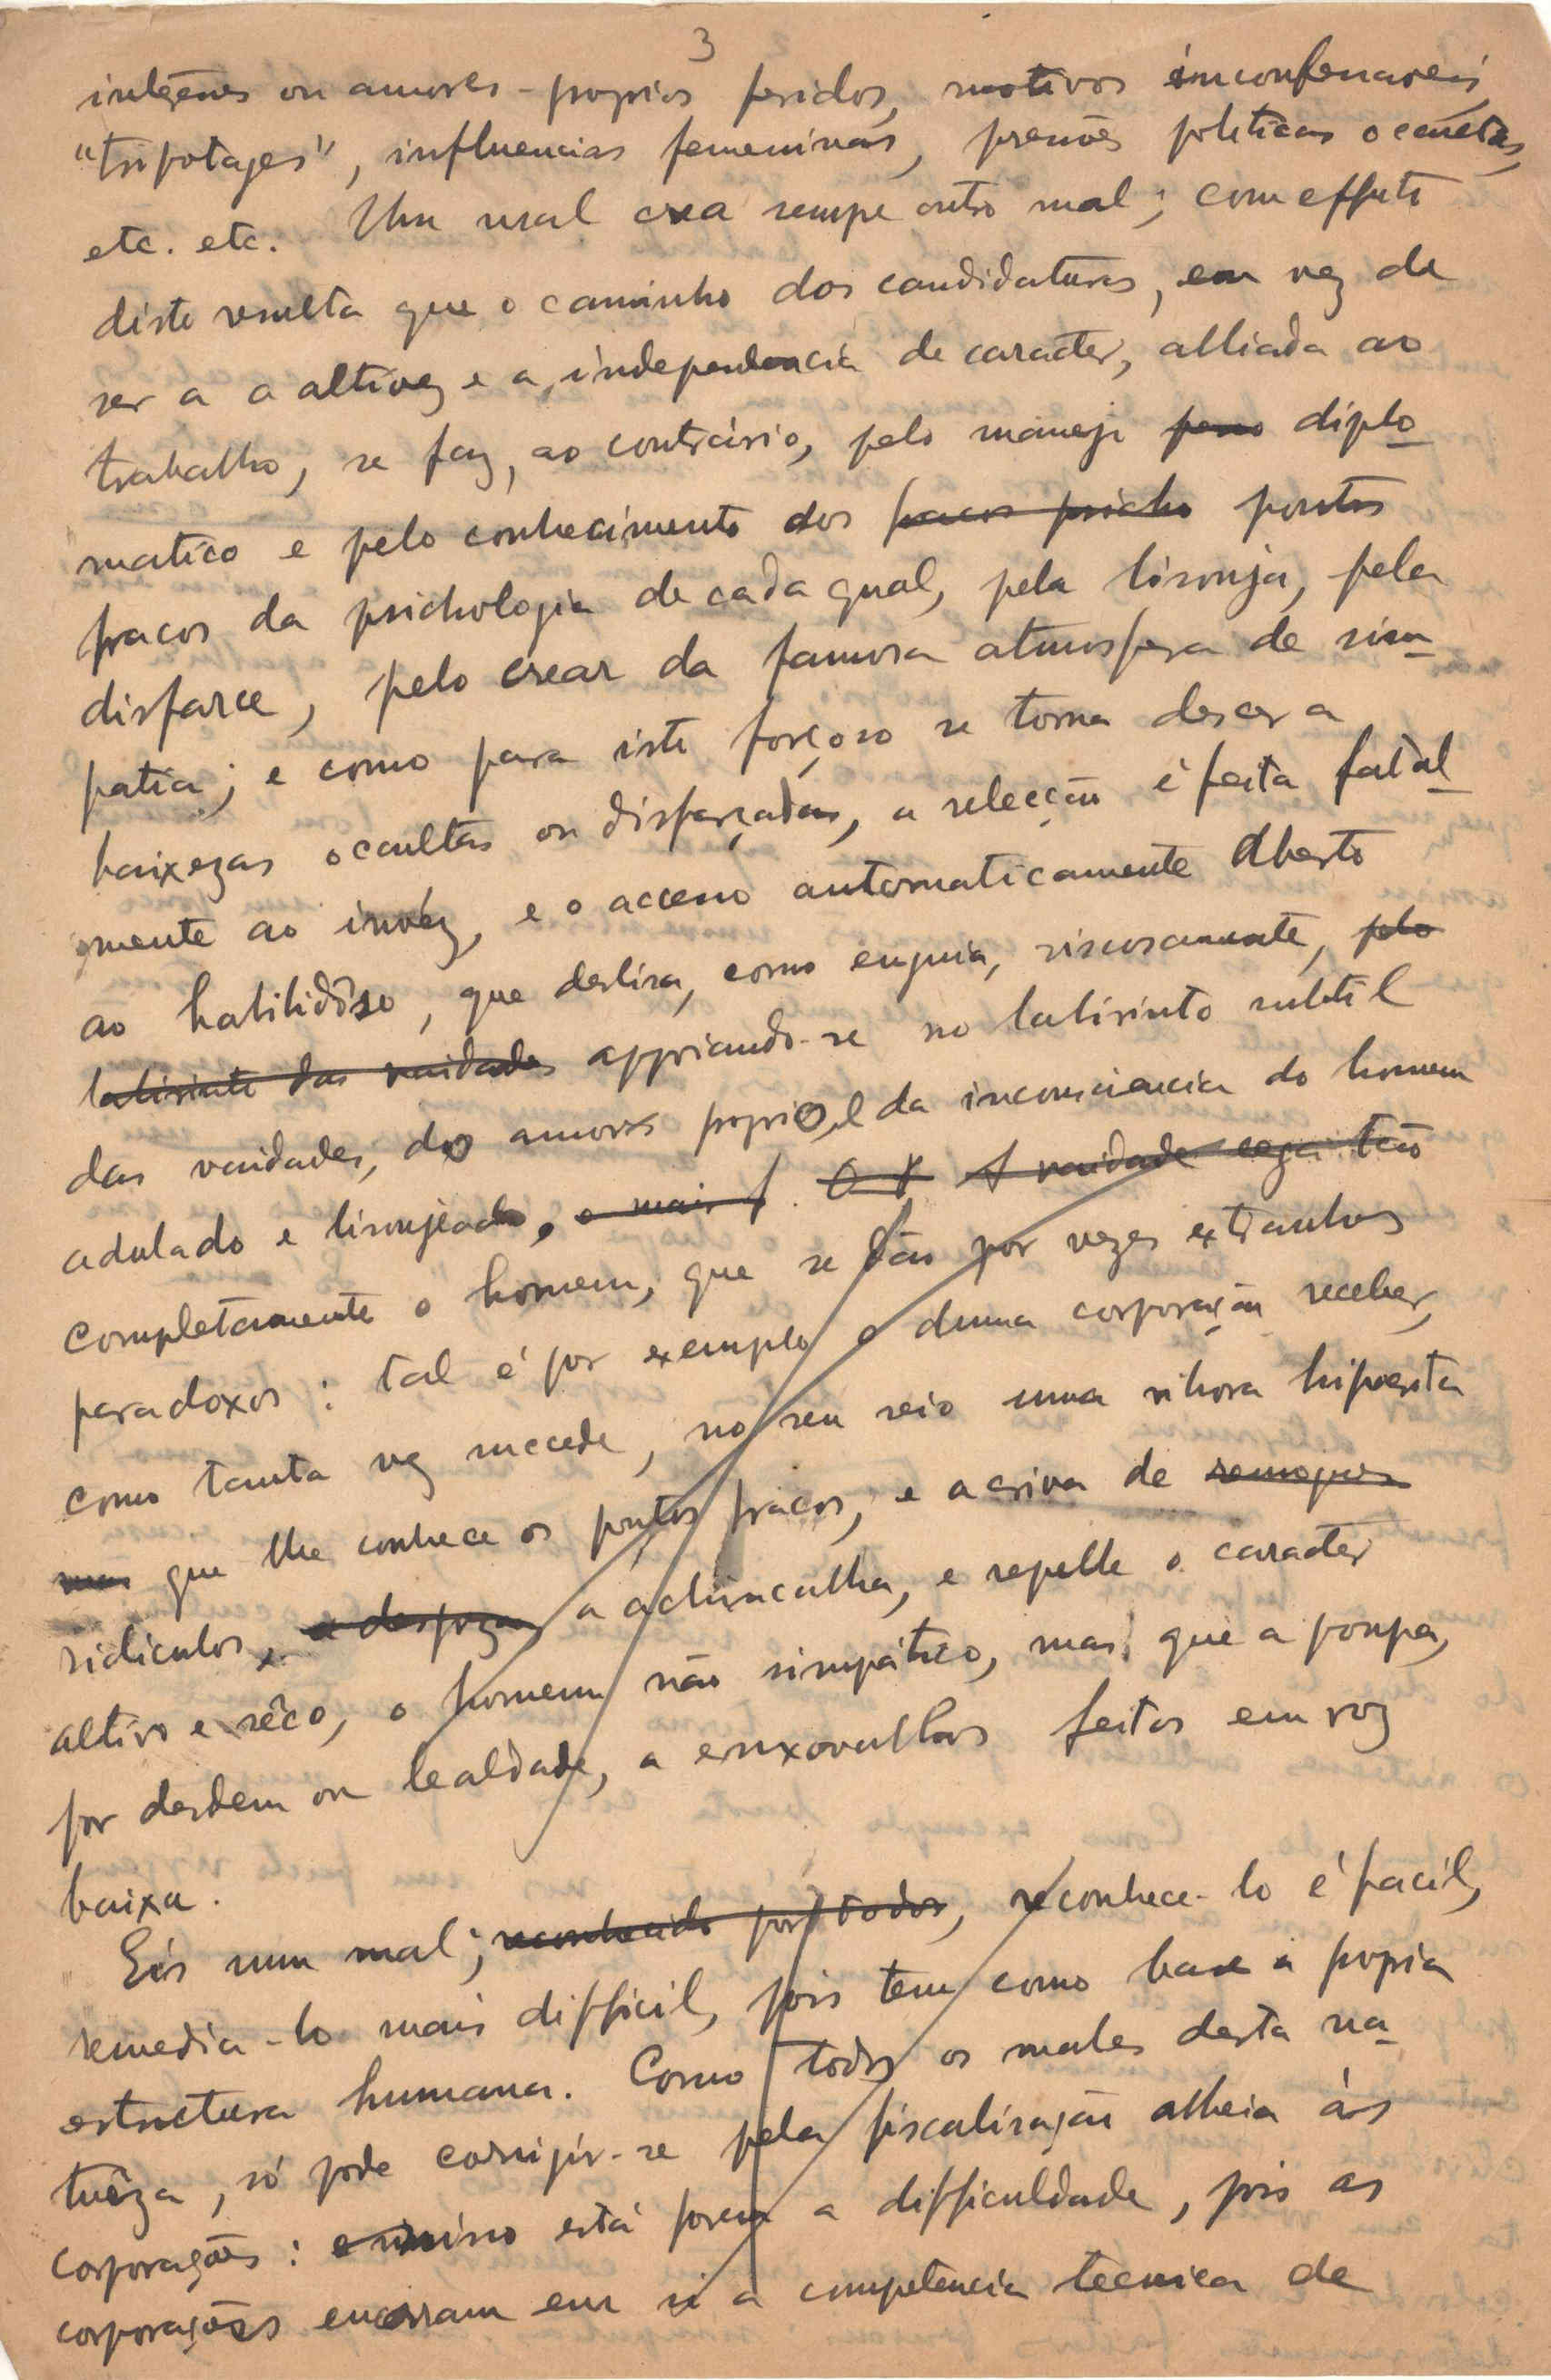 3
ou amores-proprios feridos, motivos inconfessaveis,
"tripotages", influencias femeninas, pressões politicas occultas,
etc. etc. Um mal crea sempre outro mal; com effeito
disto resulta que o caminho das candidaturas, em vez de
ser a a altivez e a independencia de caracter, alliada ao
trabalho, se faz, ao contrário, pelo manejo diplo-
matico e pelo conhecimento dos fracos psicho pontos
fracos da psichologia de cada qual, pela lisonja, pelo
disfarce, pelo crear da famosa atmosfera de sim-
patia; e como para isto forçoso se torna descer a
baixezas occultas ou disfarçadas, a selecção é feita fatal-
mente ao invéz, e o accesso automaticamente aberto
ao habilidôso, que deslisa, como enguia, sinuosamente, pelo
labirinto das vaidades appoiando-se no labirinto subtil
das vaidades, dos amores proprios, e da inconsciencia do homem
adulado e lisonjeado, e mais f. O A vaidade cega tão
completamente o homem, que se dão por vezes extranhos
paradoxos: tal é por exemplo o duma corporação receber,
como tanta vez succede, no seu seio uma vibora hipocrita
mas que lhe conhece os pontos fracos, e a criva de remoques
ridiculos, e desfeza a achincalha, e repelle o caracter
altivo e sêco, o homem não simpático, mas que a poupa,
por desdem ou lealdade, a enxovalhos feitos em voz
baixa.
Eis um mal; reconhecido por todos, reconhece-lo é facil,
remedia-lo mais difficil, pois tem como base a propria
estructura humana. Como todos os males desta na-
tureza, só pode corrigir-se pela fiscalização alheia ás
corporações: e nisso está porem a difficuldade, pois as
corporações encerram em si a competencia tecnica de